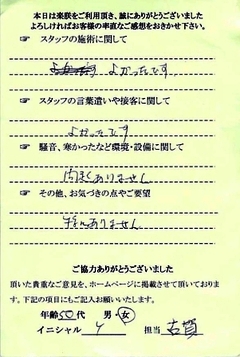 本日は楽咲をご利用頂き、誠にありがとうございました
よろしければお客様の率直なご感想をおきかせ下さい。
☞ スタッフの施術に関して
よかったです
☞ スタッフの言葉遣いや接客に関して
よかったです
☞ 騒音、寒かったなど環境・設備に関して
ありません
☞ その他、お気づきの点やご要望
ありません
ご協力ありがとうございました
頂いた貴重なご意見を、ホームページに掲載させて頂いておりま
す。下記の項目にもご記入お願いいたします。
年齢 50 代 男・女
イニシャル Y 担当 古賀